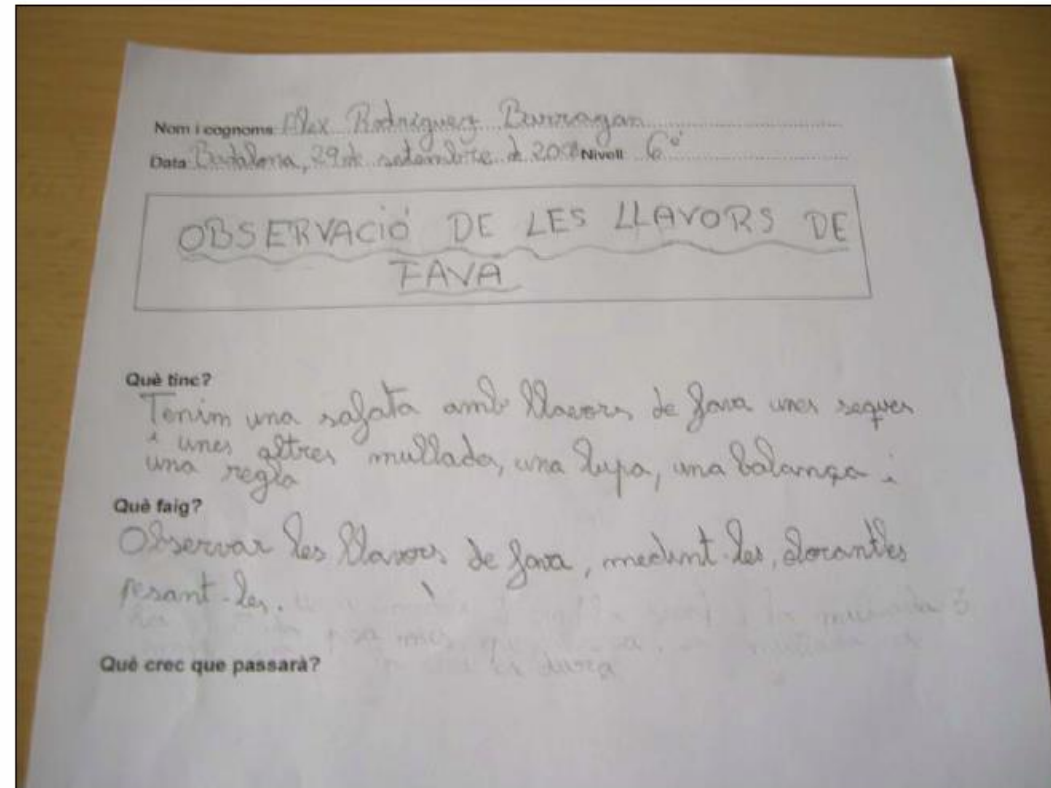 Nom i cognoms Alex Rodriguez Barragan
Data Badalona, 29 de setembre de 2008 Nivell 6º
OBSERVACIÓ DE LES LLAVORS DE
FAVA
Què tinc?
Tenim una safata amb llavors de fava unes seques
i unes altres mullades, una lupa, una balança i
una regla
Què faig?
Observar les llavors de fava, medint-les,
pesant-les.
la mullada
pesa més mullada
dura
Què crec que passarà?